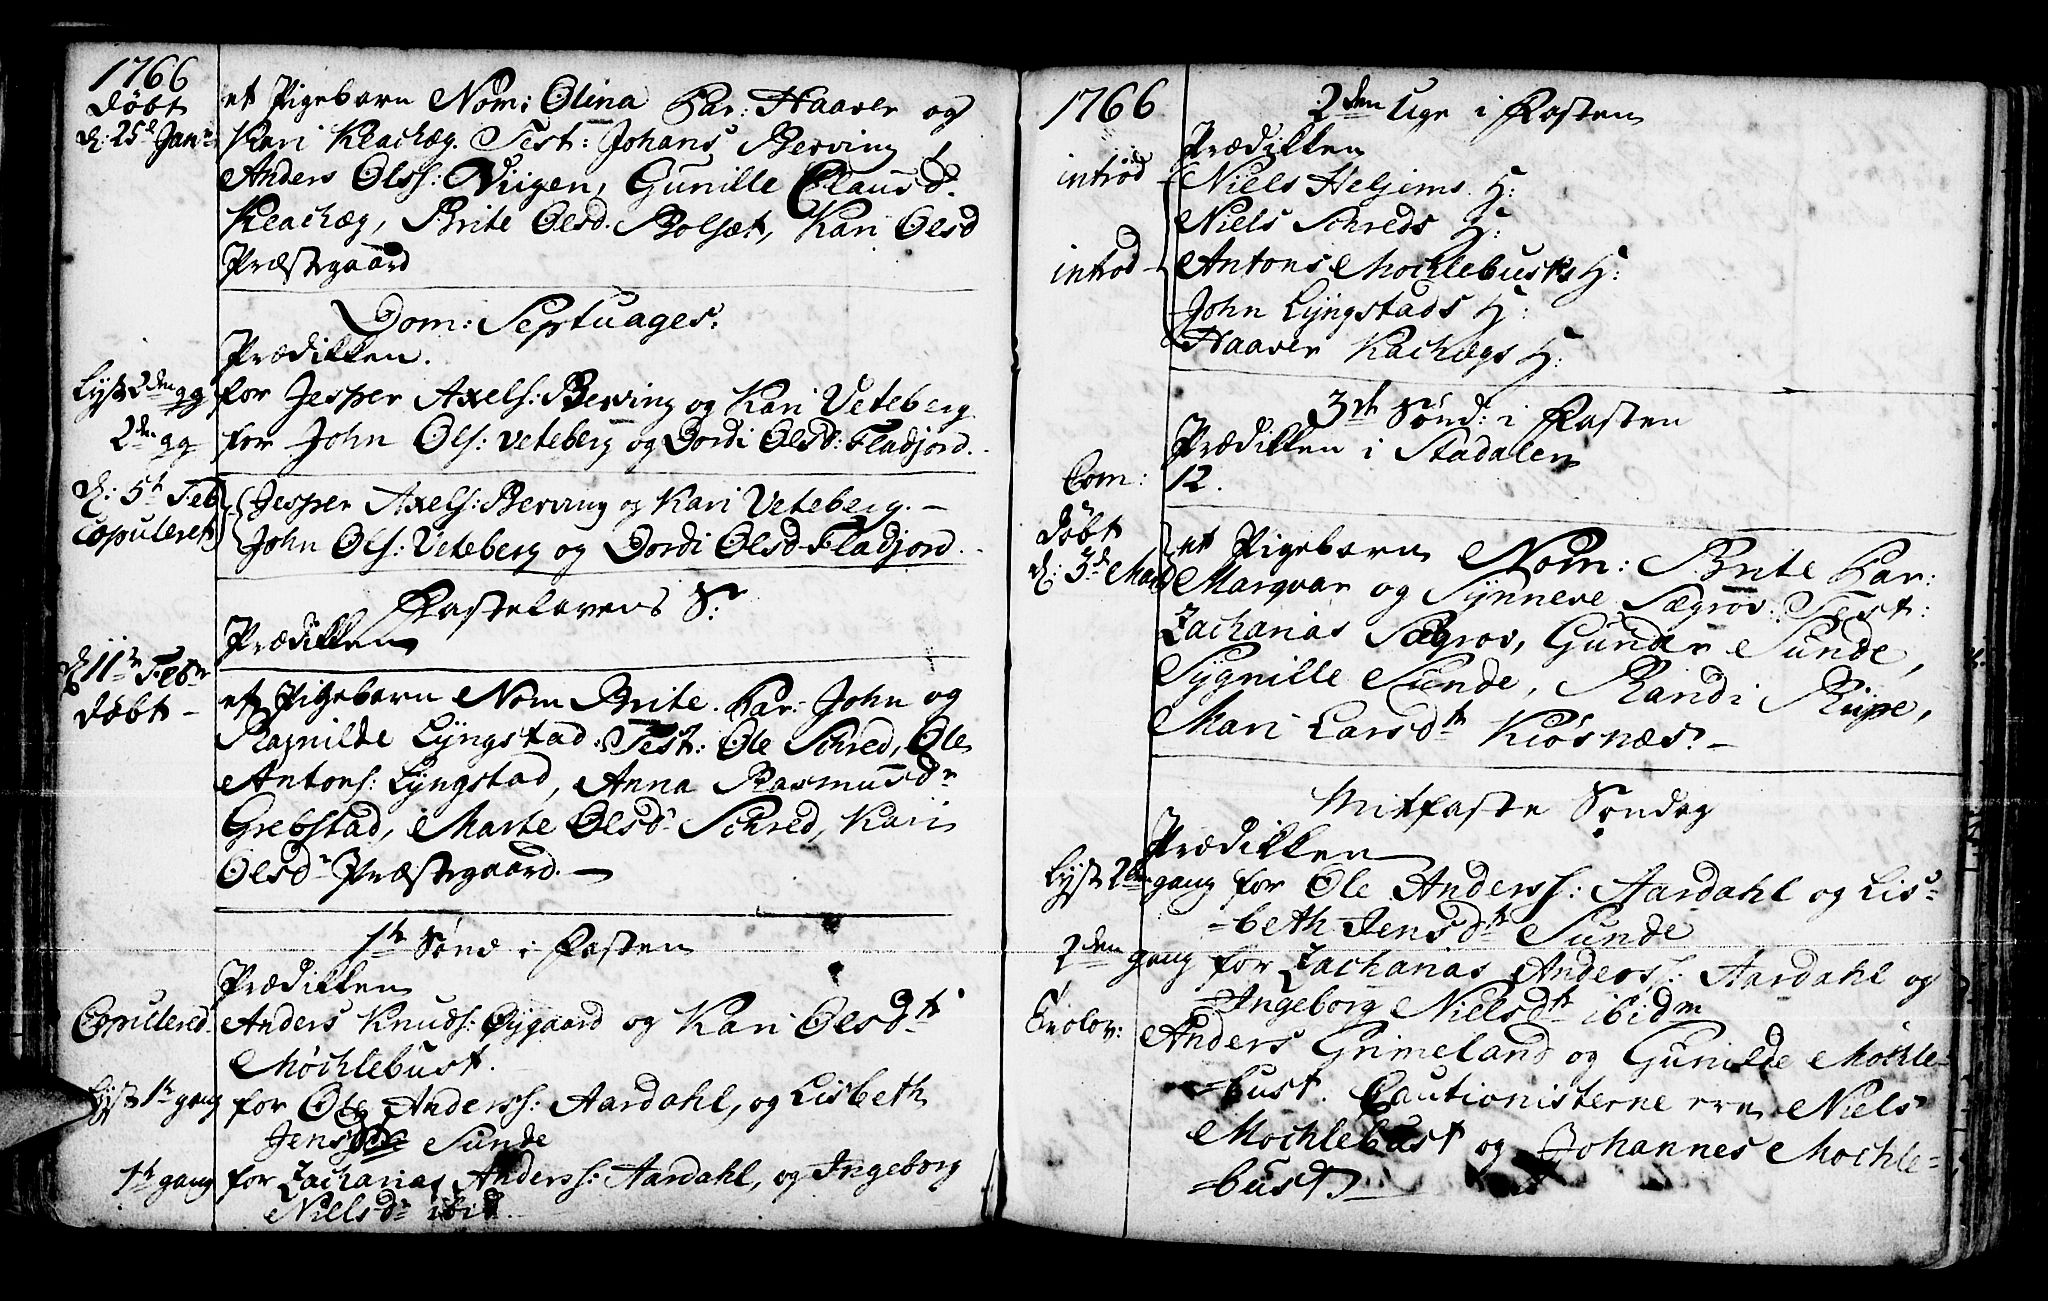 1766
Døbt
d: 25d Janr
et Pigebarn Nom: Olina Par: Haaver og
Kari Kleachæg. Test: Johans Berving
Anders Olss: Viigen, Gunille Claus D.
Kleachæg, Brite Olsd. Bolsæt, Kari Olsd
Præstegaard
Dom: Septuages:
Prædikken.
Lyst 2den gg for Jesper Axels: Berving og Kari Veteberg
2den gg for John Ols: Veteberg og Dordi Olsd: Fladjord.
d: 5t Feb Jesper Axels: Berving og Kari Veteberg. –
Copuleret John Ols: Veteberg og Dordi Olsd Fladjord.
Fastelavens S:
Prædikken
d 11te Febr
døbt –
et Pigebarn Nom Brite. Par: John og
Ragnilde Lÿngstad: Test: Ole Schred, Ole
Antons: Lÿngstad, Anna Rasmusdr
Grebstad, Marte Olsdr Schred, Kari
Olsdr Præstegaard. –
1te Sønd i Fasten
Prædikken
Copulered. Anders Knuds: Øygaard og Kari Olsdtr
Møchlebust.
Lyst 1te gang for Ole Anderss: Aardahl, og Lisbeth
Jensdr Sunde
1te gang for Zacharias Anderss: Aardahl, og Ingeborg
Nielsdr ibid
1766
2den Uge i Fasten
Prædikken
introd Niels Heljems H:
Niels Schreds H:
introd – Antons Mochlebusts H:
John Lÿngstads H:
Haaver Kachægs H:
3die Sønd: i Fasten
Prædikken i Stadalen
Com: 12.
Døbt
d: 3d Mart
et Pigebarn Nom: Brite Par:
Marqvar og Synneve Sægrov: Test:
Zacharias Sægrov, Gunder Sunde,
Sygnille Sunde, Randi Riipe,
Mari Larsdtr Kiøsnæs. –
Mitfaste Søndag
Prædikken
Lyst 2den gang for Ole Anderss: Aardahl og Lis-
-beth Jensdtr Sunde
2den gang for Zacharias Anderss: Aardahl og
Ingeborg Nielsdtr ibidm
Trolov: Anders Grimeland og Gunilde Mochle-
-bust. Cautionisterne ere Niels
Mochlebust og Johannes Mochle-
-bust –